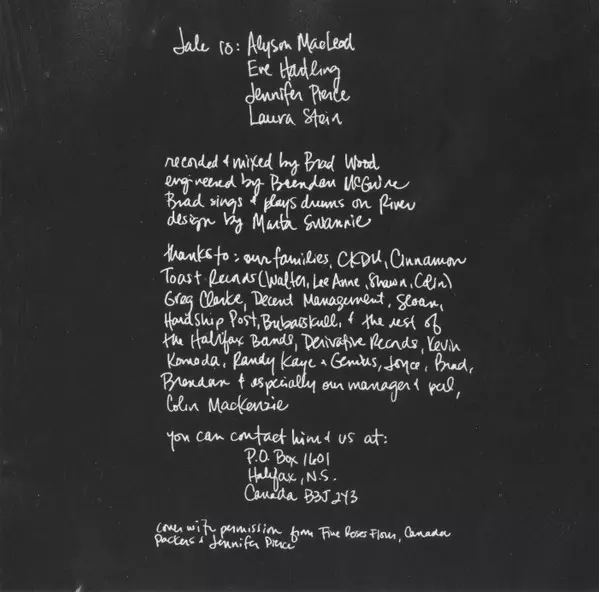 Jale is: Alyson MacLeod
Eve Hartling
Jennifer Pierce
Laura Stein
recorded & mixed by Brad Wood
engineered by Brendan McGuire
Brad sings & plays drums on River
design by Marta Swannie
thanks to: our families, CKDU, Cinnamon
Toast Records (Walter, Lee Anne, Shawn, Colin)
Greg Clarke, Decent Management, Sloan,
Hardship Post, Bubaiskull, & the rest of
the Halifax Bands, Derivative Records, Kevin
Komoda, Randy Kaye & Genius, Joyce, Brad,
Brendan & especially our manager & pal,
Colin MacKenzie
you can contact him & us at:
P.O. Box 1601
Halifax, N.S.
Canada B3J 2Y3
cover with permission from Five Roses Flour, Canada
Packers & Jennifer Pierce